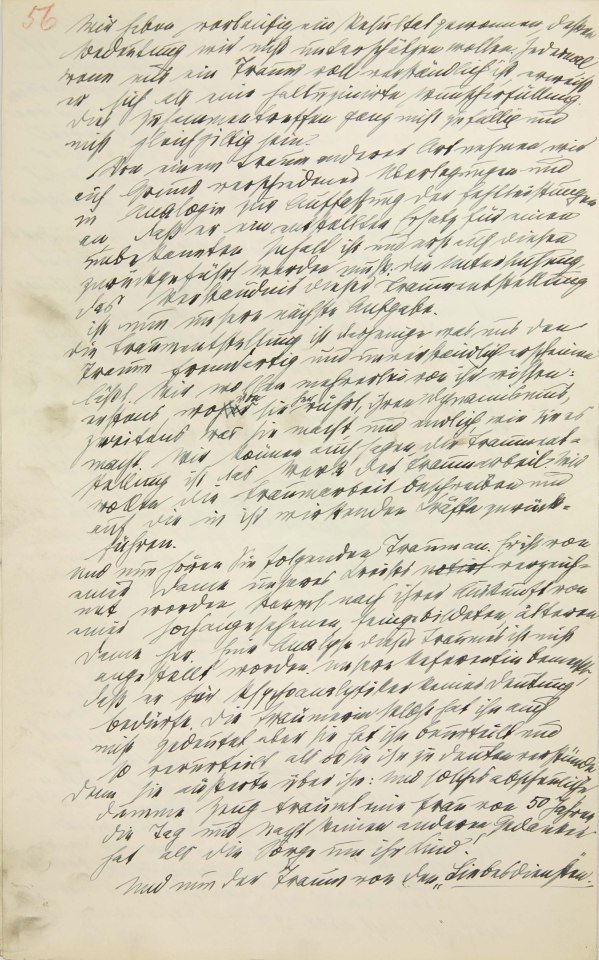 56
Wir haben vorläufig ein Resultat gewonnen, dessen
Bedeutung wir nicht unterschätzen wollen. Jedesmal
wenn uns ein Traum voll verständlich ist, erweist
er sich als eine halluzinierte Wunscherfüllung.
Dies Zusammentreffen kann nicht zufällig und
nicht gleichgiltig sein.
Von einem Traum anderer Art nehmen wir
auf Grund verschiedener Überlegungen und
in Analogie zur Auffassung der Fehlleistungen
an, daß er ein entstellter Ersatz für einen
unbekannten Inhalt ist und erst auf diesen
zurückgeführt werden muß. Die Untersuchung,
das Verständnis dieser Traumentstellung
ist nun unsere nächste Aufgabe.
Die Traumentstellung ist dasjenige was uns den
Traum fremdartig und unverständlich erscheinen
läßt. Wir wollen mehrerlei von ihr wissen:
erstens, wovon sie herrührt, ihren Dynamismus,
zweitens was sie macht und endlich wie sie es
macht. Wir können auch sagen, die Traument-
stellung ist das Werk der Traumarbeit. Wir
wollen die Traumarbeit beschreiben und
auf die in ihr wirkenden Kräfte zurück-
führen.
Und nun hören Sie folgenden Traum an. Er ist von
einer Dame unseres Kreises verzeich-
net worden, stammt nach ihrer Auskunft von
einer hochangesehenen, feingebildeten, älteren
Dame her. Eine Analyse dieses Traumes ist nicht
angestellt worden. Unsere Referentin bemerkt,
daß er für Psychoanalytiker keiner Deutung
bedürfe. Die Träumerin selbst hat ihn auch
nicht gedeutet, aber sie hat ihn beurteilt und
so verurteilt als ob sie ihn zu deuten verstünde.
Denn sie äußerte über ihn: und solches abscheuliche
dumme Zeug träumt eine Frau von 50 Jahren
die Tag und Nacht keinen anderen Gedanken
hat als die Sorge um ihr Kind!
Und nun der Traum von den „Liebesdiensten.“